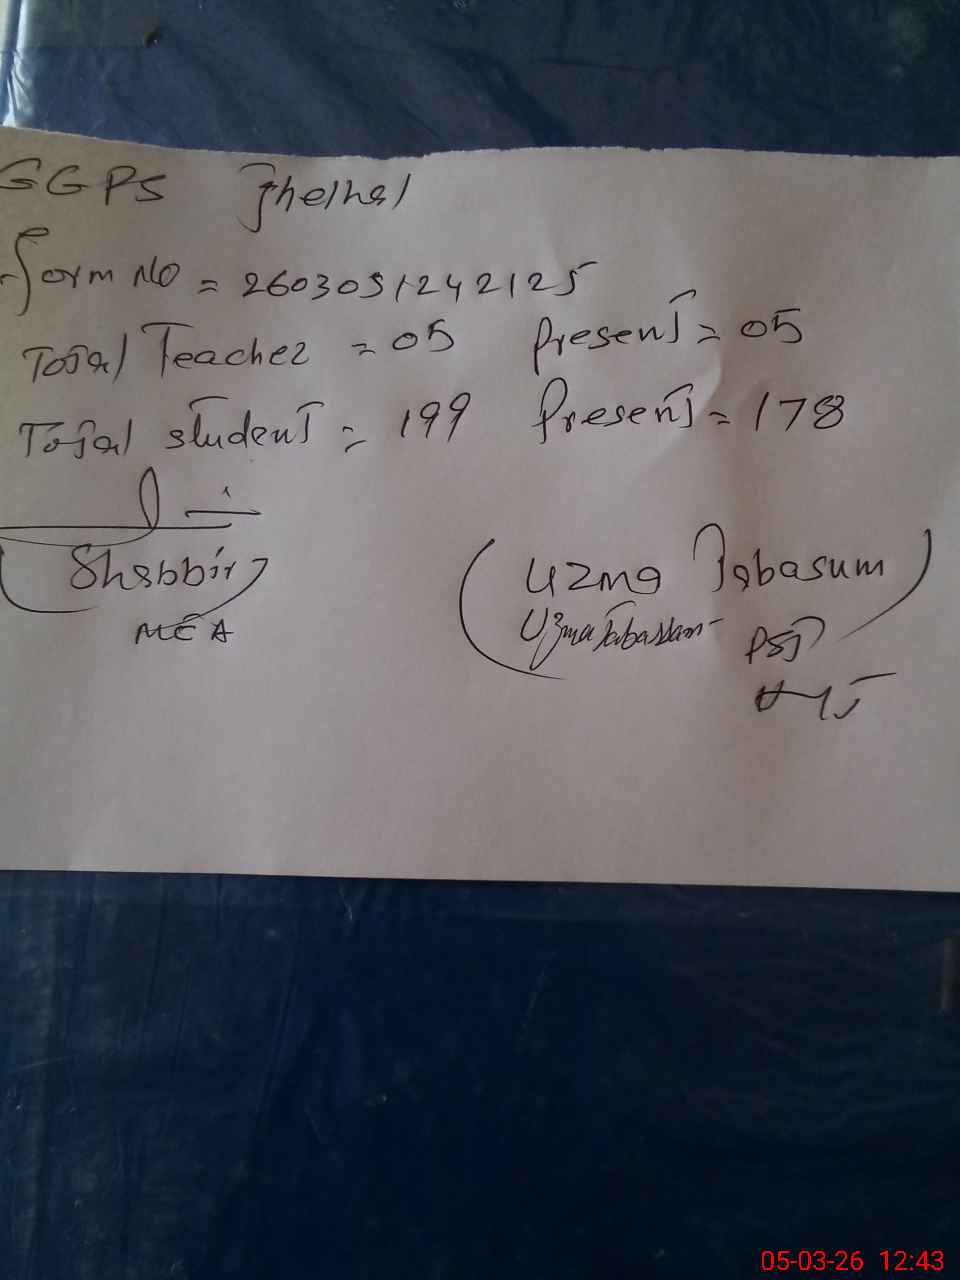 GGPS Jhelhal
Form No = 2603051242125
Total Teacher = 05 Present = 05
Total student = 199 Present = 178
Shabbir
MEA
Uzma Tabasum
Uzma Tabassam
PST
05-03-26 12:43